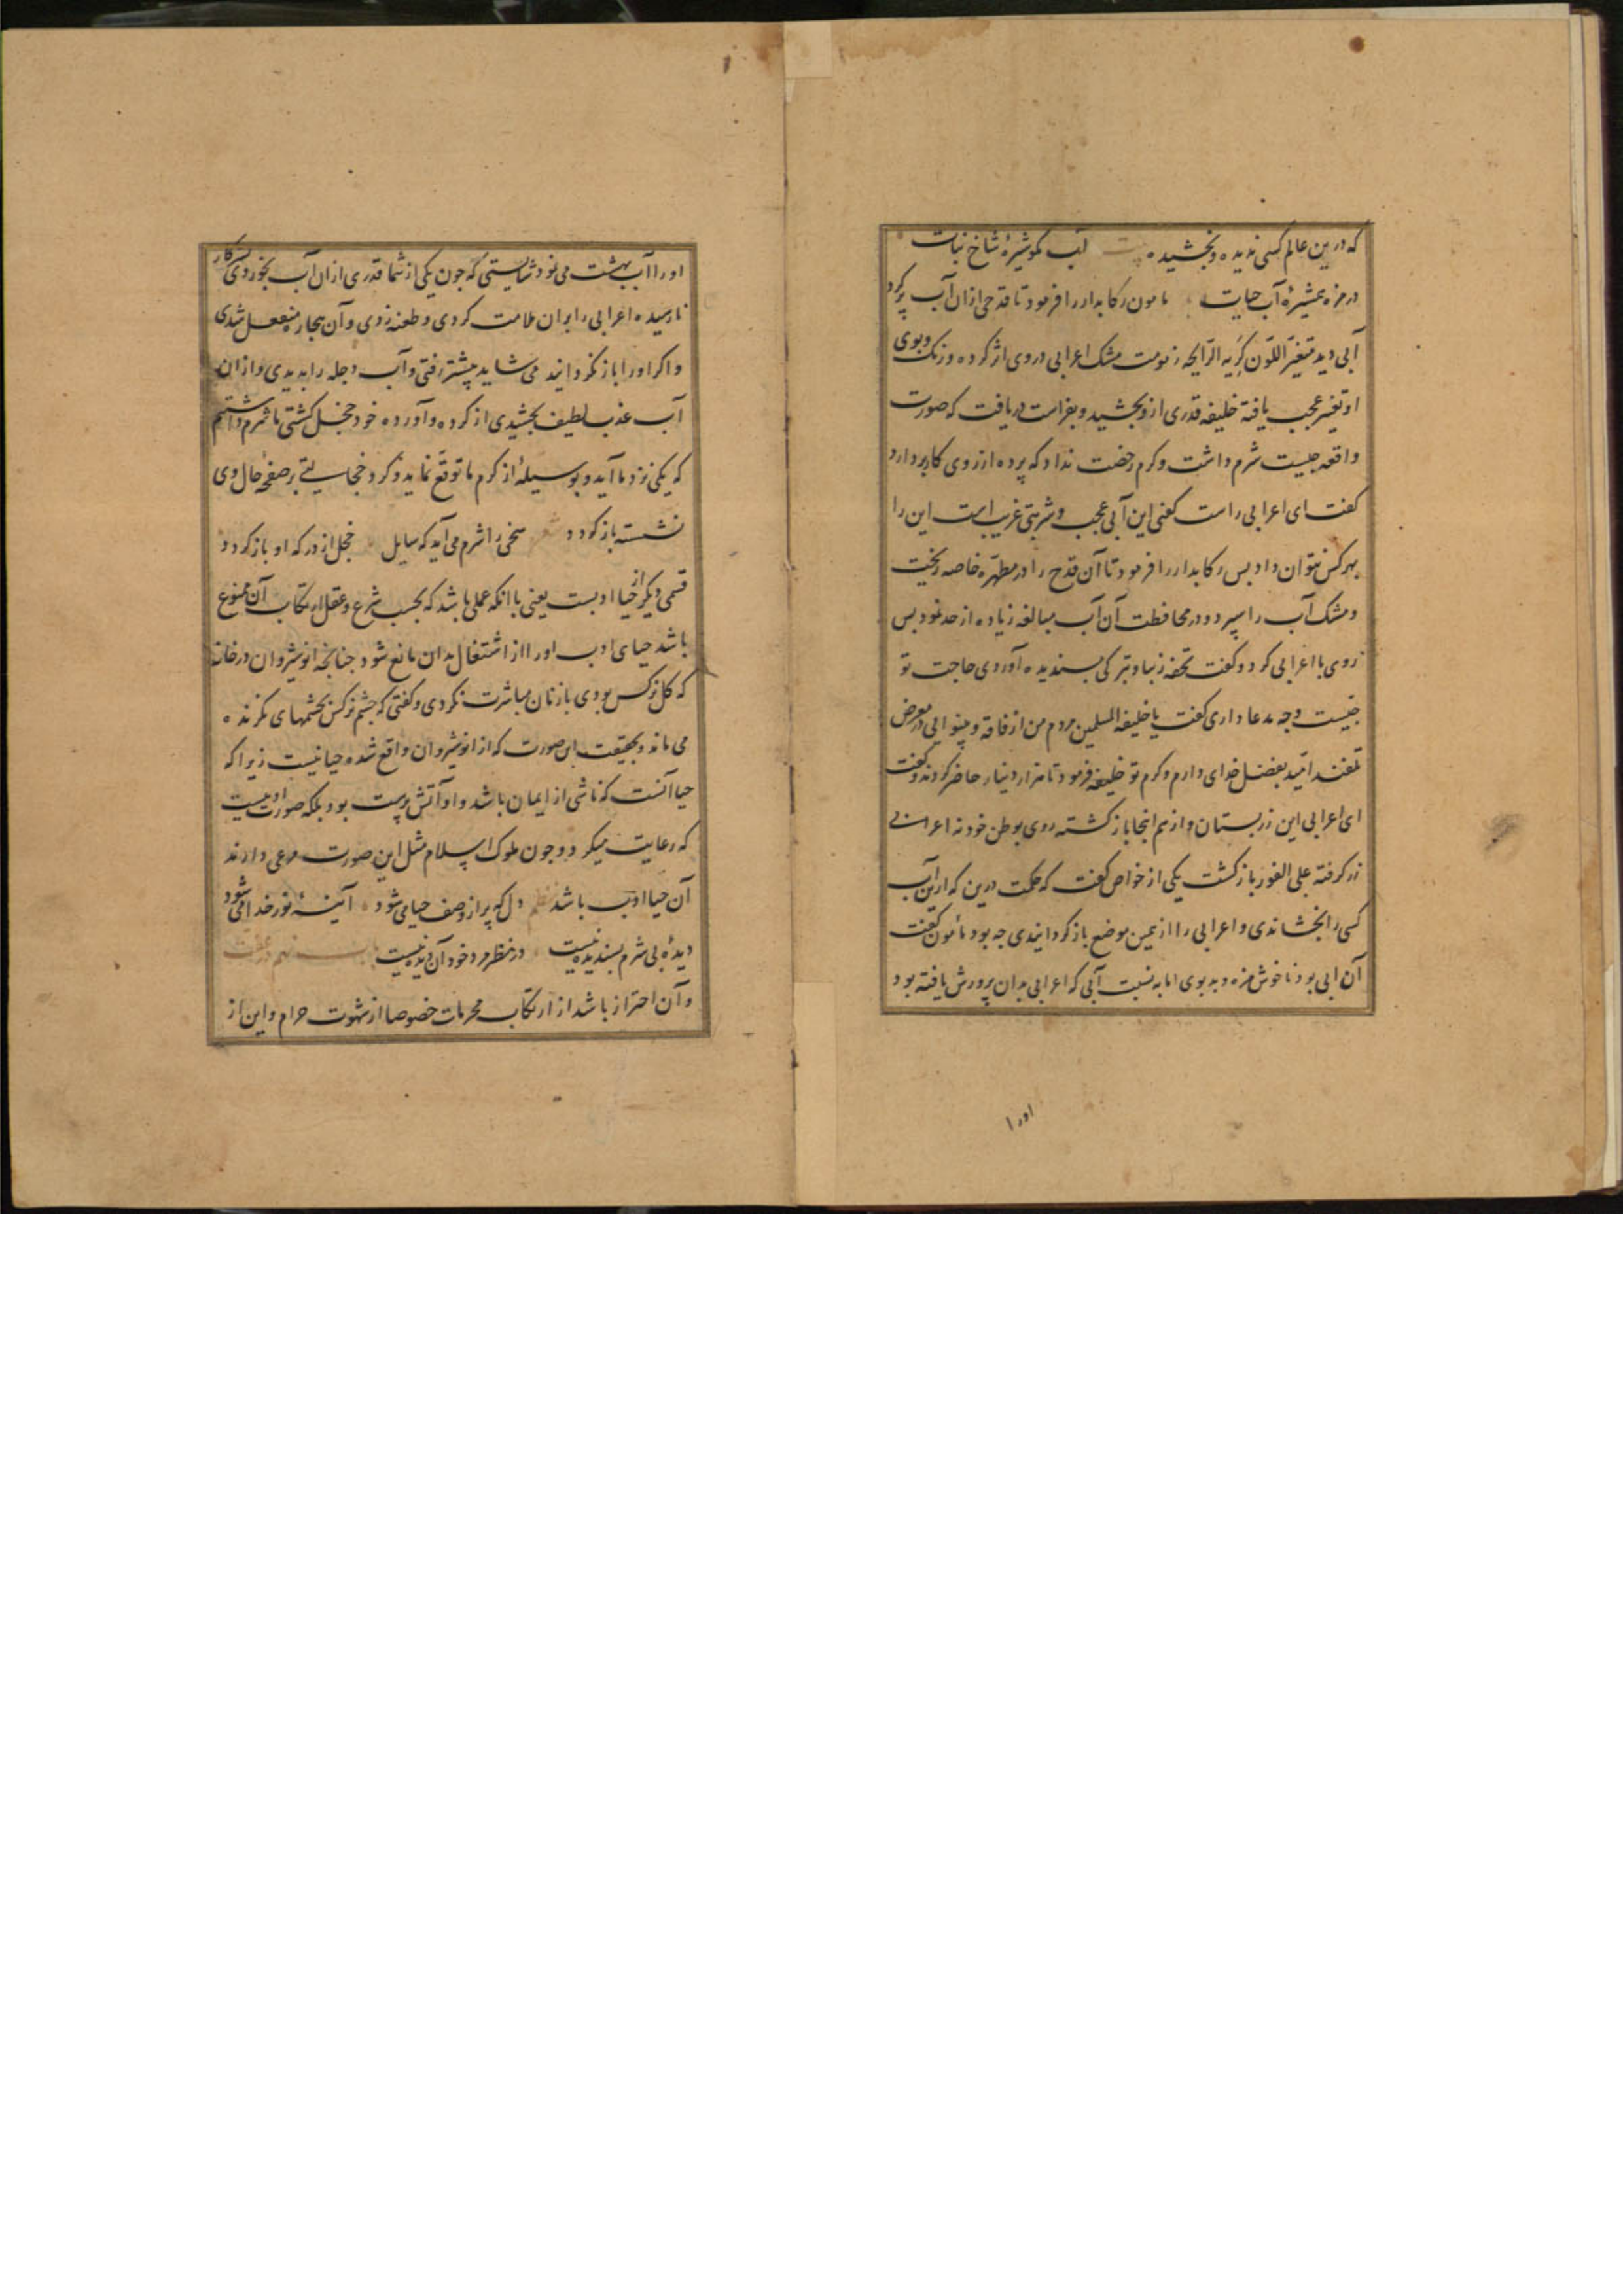 که درین عالم کسی ندیده و نچشیده بیت آب مکو شیرهٔ شاخ نبات
در مزه همشیرهٔ آب حیات مامون رکابدار را فرمود تا قدحی ازان آب پر کرد
آبی دید متغیّر اللّون کریه الرّایحه زهومت مشک اعرابی در وی اثر کرده و رنک و بوی
او تغیر عجب یافته خلیفه قدری ازو بچشید و بفراست دریافت که صورت
واقعه چیست شرم داشت و کرم رخصت نداد که پرده از روی کار بردارد
کفت ای اعرابی راست کفتی این آبی عجب و شربتی غریب است این را
بهر کس نتوان داد بس رکابدار را فرمود تا آن قدح را در مطهّره خاصه ریخت
و مشک آب را سپرد و در محافظت آن آب مبالغه زیاده از حد نمود بس
روی با اعرابی کرد و کفت تحفه زیبا و تبرکی بسندیده آوردی حاجت تو
جیست و جه مدعا داری کفت یا خلیفة المسلمین مردم من از فاقه و بینوایی در معرض
تلفند امّید بفضل خدای دارم و کرم تو خلیفه فرمود تا هزار دینار حاضر کردند و کفت
ای اعرابی این زر بستان و از هم اینجا باز کشته روی بوطن خود نه اعرابی
زر کرفته علی الفور باز کشت یکی از خواص کفت که حکمت درین که ازین آب
کسی را نچشاندی و اعرابی را از همین موضع باز کردانیدی جه بود مأمون کفت
آن ابی بود ناخوش مزه و بد بوی اما به نسبت آبی که اعرابی بدان پرورش یافته بود
اورا
او را آب بهشت می نمود شایستی که جون یکی از شما قدری ازان آب بخوردی بسر کار
نارسیده اعرابی را بران ملامت کردی و طعنه زدی و آن بیجاره منفعل شدی
و اکر او را باز نکردانیدمی شاید پیشتر رفتی و آب دجله را بدیدی و ازان
آب عذب لطیف بچشیدی از کرده و آورده خود خجل کشتی ما شرم داشتم
که یکی نزد ما آید و بوسیلهٔ از کرم ما توقّع نماید و کرد خجالتی بر صفحهٔ حال وی
نشسته باز کردد شعر سخی را شرم می آید که سایل خجل از درکه او باز کردد
قسمی دیکر از حیا ادبست یعنی با انکه عملی باشد که بحسب شرع و عقل ارتکاب آن ممنوع
باشد حیای ادب او را از اشتغال بدان مانع شود جنانجه انوشیروان در خانهٔ
که کل نرکس بودی با زنان مباشرت نکردی و کفتی که جشم نرکس بجشمهای نکرنده
می ماند و بحقیقت این صورت که از انوشیروان واقع شده حیا نیست زیرا که
حیا آنست که ناشی از ایمان باشد و او آتش پرست بود بلکه صورت ادبیست
که رعایت میکرد و جون ملوک اسلام مثل این صورت مرعی دارند
آن حیا ادب باشد نظم دل که پر از وصف حیا می شود آیینهٔ نور خدا می شود
دیدهٔ بی شرم بسندیده نیست در نظر مرد خود آن دیده نیست باب هم در عفّت
و آن احتراز باشد از ارتکاب محرمات خصوصا از شهوت حرام و این از